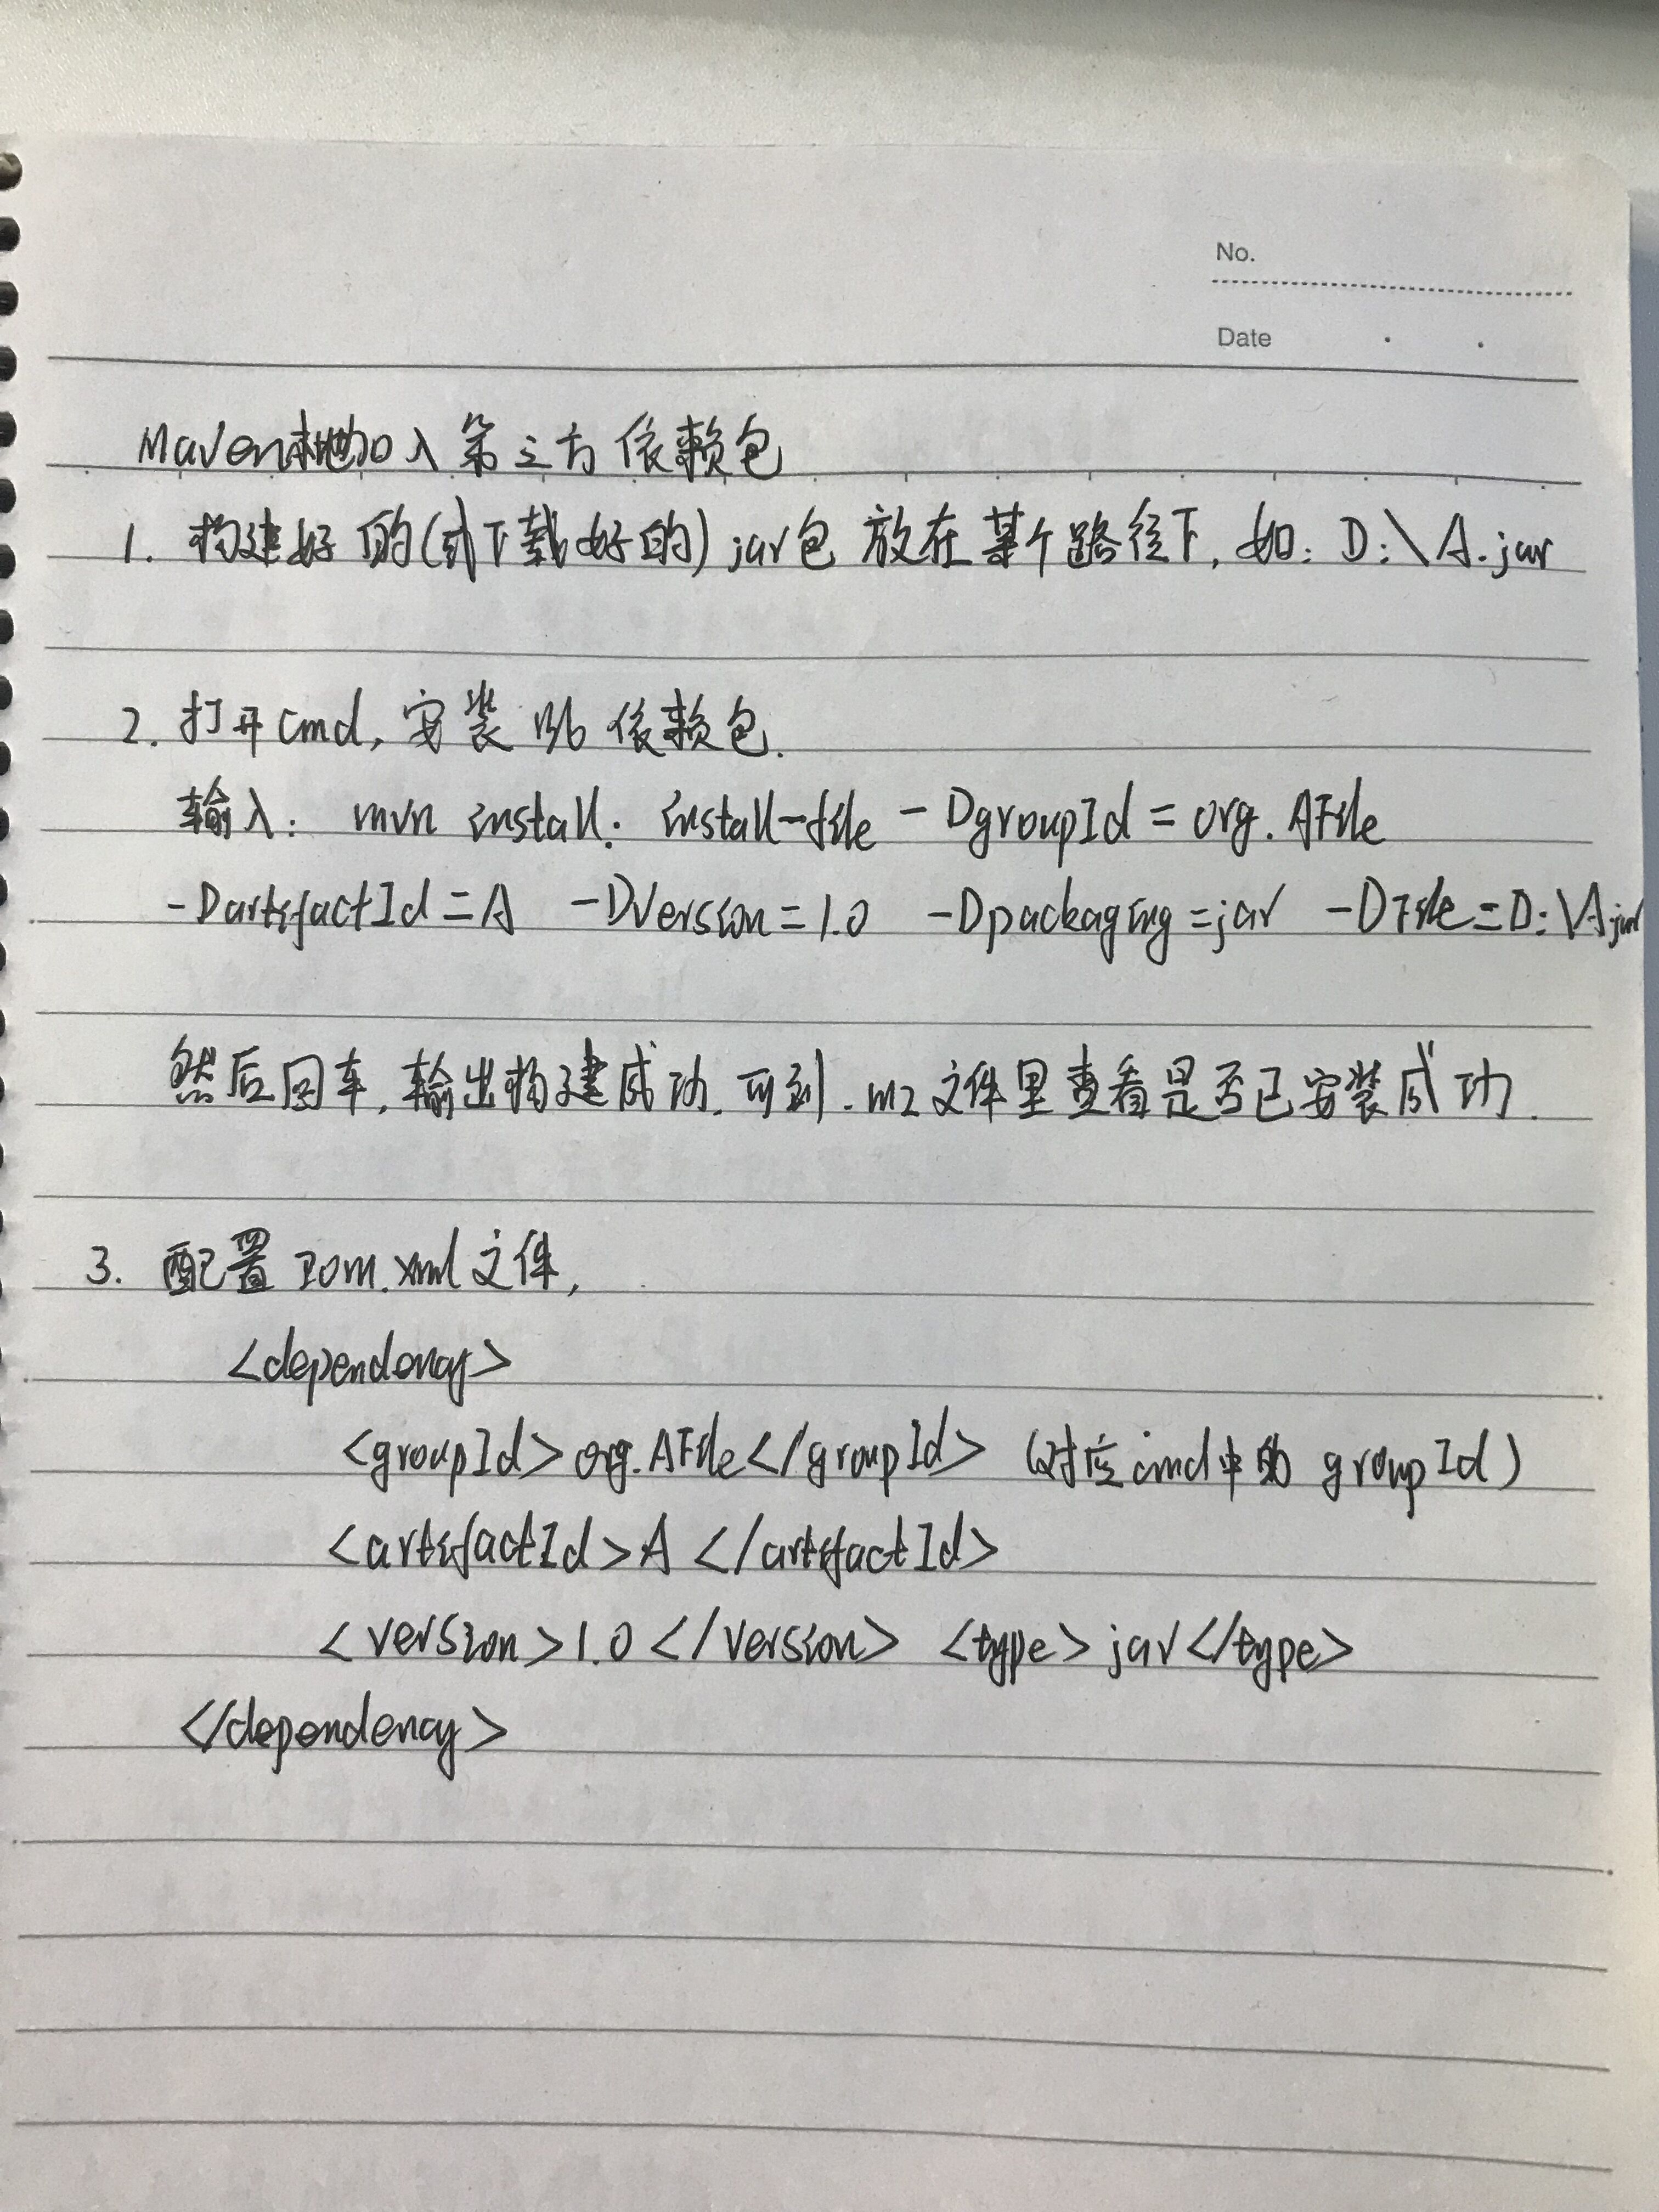 No.
Date
Maven本地加入第三方依赖包
1. 构建好的(或下载好的) jar包 放在某个路径下, 如: D:\A.jar
2. 打开cmd, 安装此依赖包.
输入: mvn install: install-file -DgroupId = org.AFile
-DartifactId=A -DVersion=1.0 -Dpackaging=jar -DFile=D:\A.jar
然后回车, 输出构建成功. 可到 .m2文件里查看是否已安装成功.
3. 配置 pom.xml文件,
<dependency>
<groupId>org.AFile</groupId> (对应cmd中的 groupId)
<artifactId>A </artifactId>
<version>1.0</version> <type>jar</type>
</dependency>